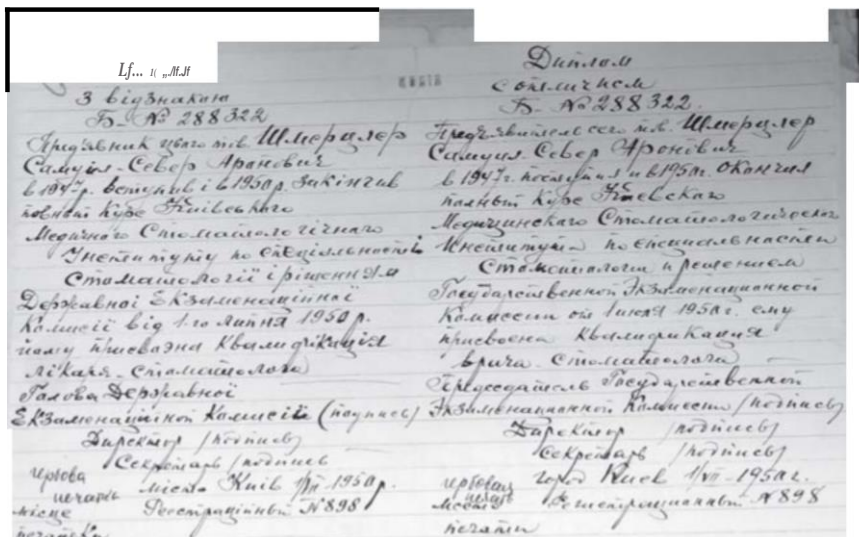 З відзнакою
Б- № 288322
Предъявник цього тов. Шмерцлер
Самуїл-Север Аронович
в 1947р. вступив і в 1950р. закінчив
повний Курс Київського
Медичного Стоматологічного
Інституту по спеціальності
Стоматології і рішенням
Державної Екзаменаційної
Комисії від 1-го липня 1950 р.
йому присвоєна Квалифікація
лікаря-стоматолога
Голова Державної
Екзаменаційной Комисії (подпись)
Директор /подпись/
Секретарь /подпись
гербова
печать
місто Київ 1/VII-1950р.
місце
Реестраційный N 898
печатки
КОПІЯ
Диплом
с отличием
Б- № 288322.
Предъявитель сего т.в. Шмерцлер
Самуил-Север Аронович
в 1947г. поступил и в 1950г. окончил
полный Курс Киевского
Медицинского Стоматологического
Института по специальности
Стоматология и решением
Государственной Экзаменационной
Комиссии от 1 июля 1950г. ему
присвоена Квалификация
врача-стоматолога
Председатель Государственной
Экзаменационной Комиссии /подпись/
Директор /подпись/
Секретарь /подпись/
гербовая
печать
город Киев 1/VII-1950г.
место
Регистрационный N 898
печати